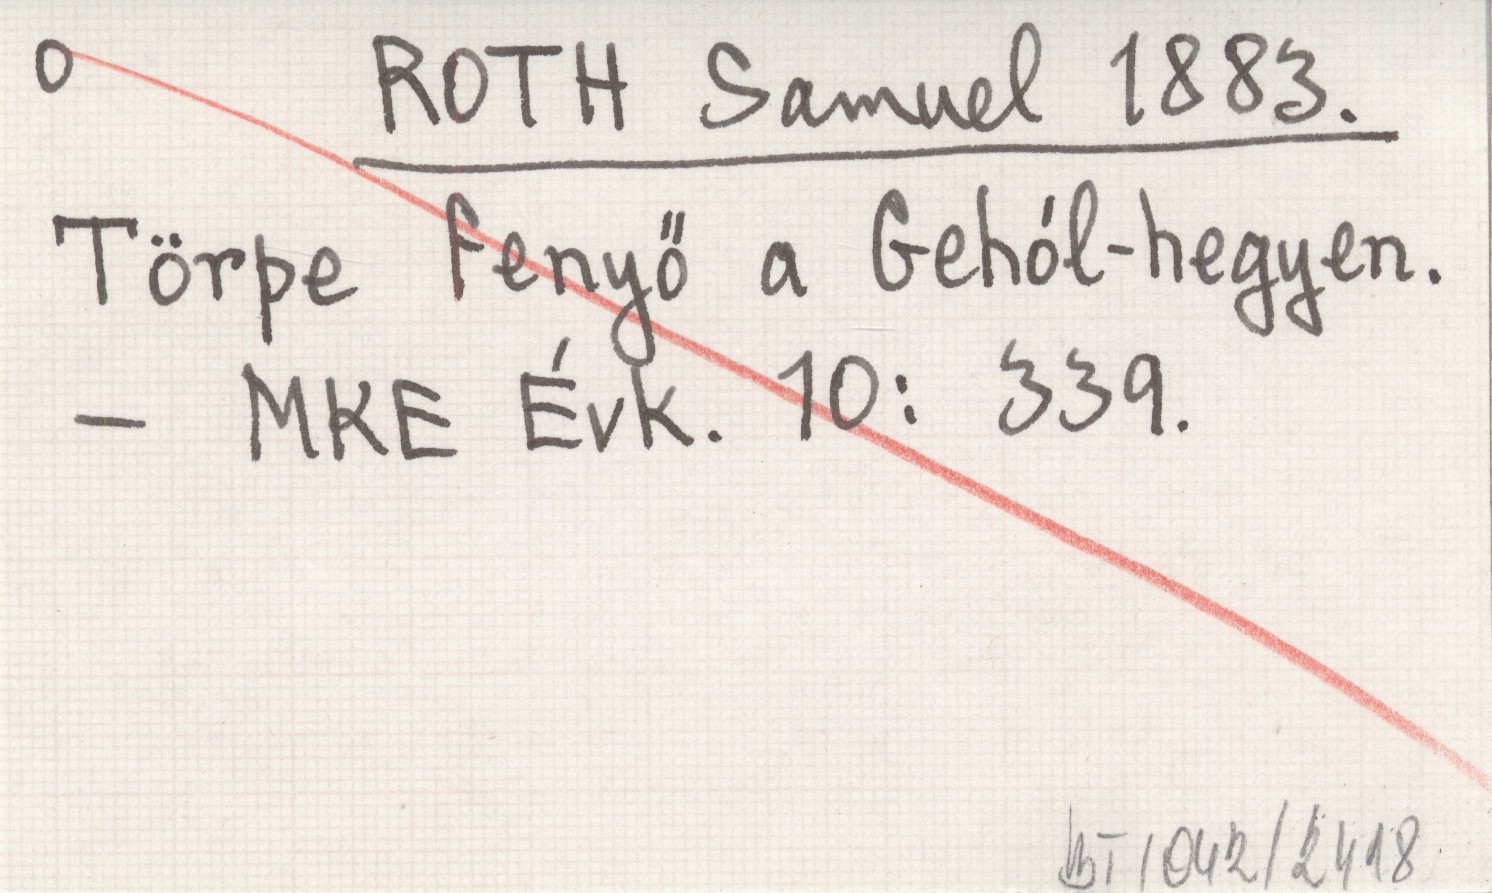 O ROTH Samuel 1883.
Törpe fenyő a Gehól-hegyen.
— MKE Évk. 10: 339.
BT 1042/2418